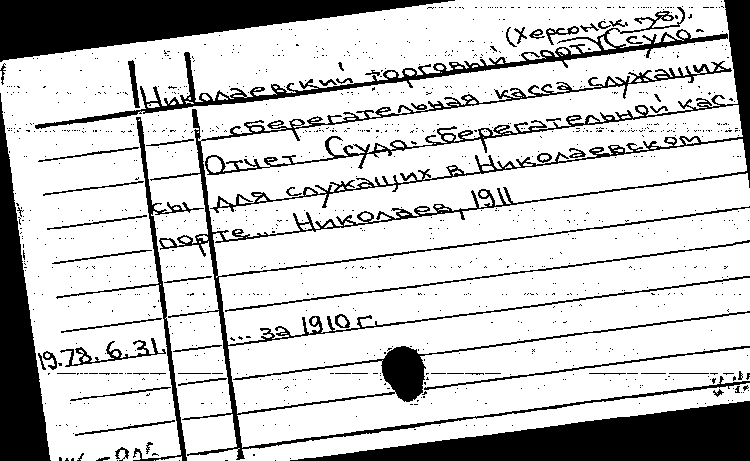 (Херсонск. губ.).
Николаевский торговый порт. Ссудо-
сберегательная касса служащих
Отчет Ссудо-сберегательной кас-
сы для служащих в Николаевском
порте... Николаев, 1911
... за 1910 г.
19.78.6.31.